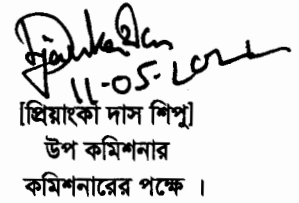 11-05-2022
[প্রিয়াংকা দাস শিপু]
উপ কমিশনার
কমিশনারের পক্ষে ।